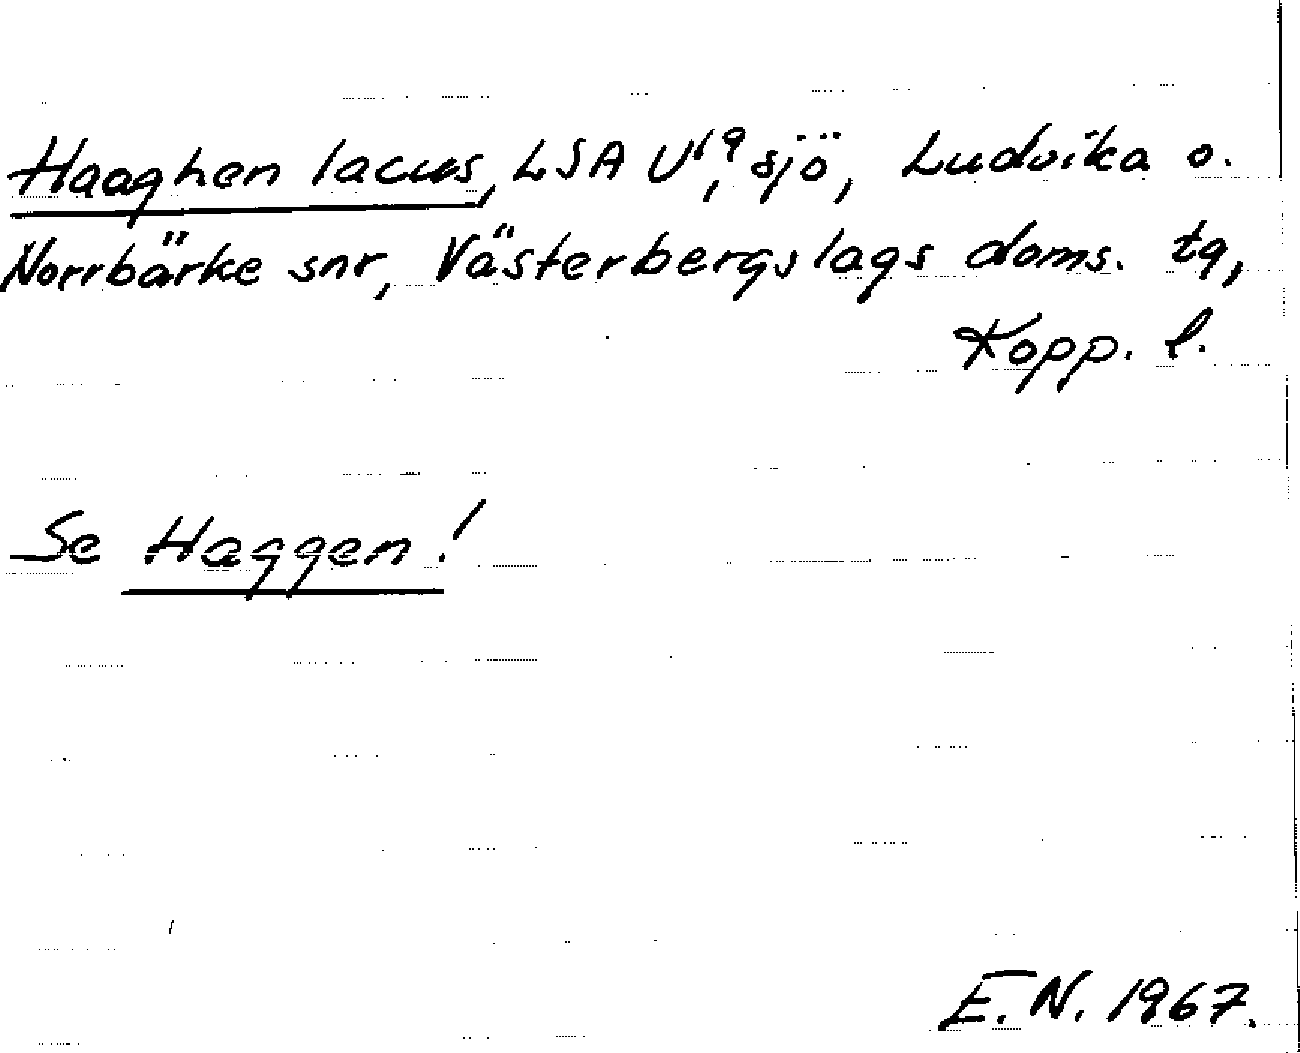 Haaghen lacus, LSA U¹⁹, sjö, Ludvika o.
Norrbärke snr, Västerbergslags doms. tg,
Kopp. l.
Se Haggen!
E.N. 1967.